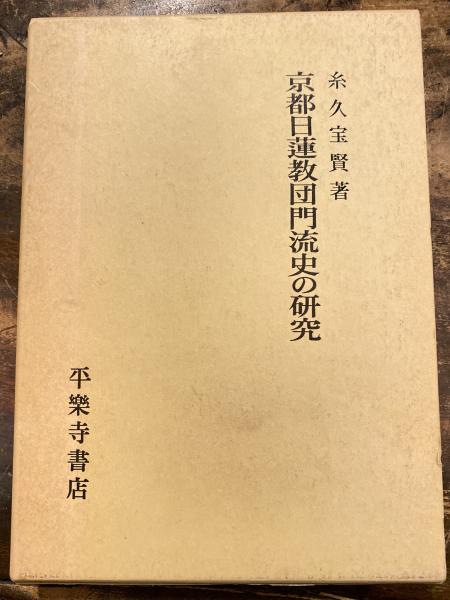 糸久宝賢著
京都日蓮教団門流史の研究
平樂寺書店